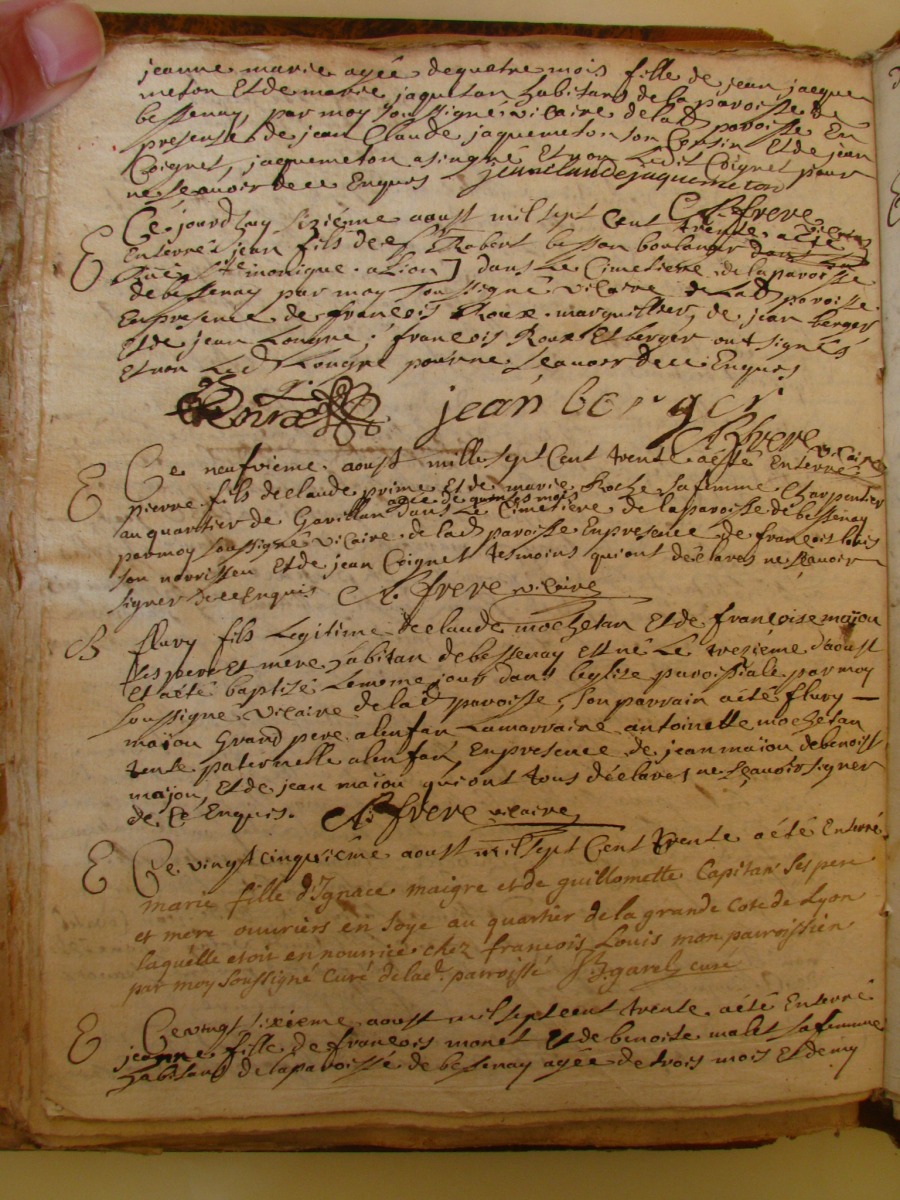 jeanne marie agée dequatre mois fille de jean jacque
meton Et de marie jaquetan habitans de la paroisse de
bessenay, par moy soussigné vicaire de lad paroisse En
presence de jean Claude jaquemeton son Cousin Et de jean
Coignet, jaquemeton a singné Et non Ledit Coignet pour
ne sçavoir de ce Enquis jean claude jaquemeton
R. frere vicaire
E Ce jourdhuy sizième aoust mil sept Cent trente a eté
Enterré jean fils de Robert besson boulanger dans
Rue Ste monique a Lion] dans Le Cimetiere de la paroisse
de bessenay par moy soussigné vicaire de Lad paroisse.
En presence de françois Roux marguillier, de jean berger
Et de jean Longre; françois Roux Et berger ont signés
Et non Led Longre pour ne sçavoir de ce Enquis
Roux jean berger
R. frere vicaire
E Ce neufvieme aoust mille sept Cent trente a esté Enterré
pierre fils de claude prime Et de marie Roche sa femme Charpentier
agée de quinse mois
au quartier de Gorillan dans Le Cimetière de la paroisse de bessenay
par moy soussigné vicaire de lad paroisse En presence de françois Louis
son norrissen Et de jean Coignet tesmoins qui ont déclares ne sçavoir
signer de ce Enquis R. frere vicaire
B flury fils Legitime de claude mochetan Et de françoise maïou
ses pere Et mere habitan de bessenay Est né Le trezième d'aoust
Et a eté baptizé Le meme jour dans leglise paroissiale par moy
soussigné vicaire de la d paroisse, son parrain a eté flury
maïou Grand pere a lenfan La marraine antoinette mochetan
tente paternelle a lenfan, En presence de jean maïou de benoist
majou, Et de jean maïou qui ont tous déclarés ne sçavoir signer
de ce Enquis. R. frere vicaire
E Ce vingt cinquième aoust mil sept Cent trente a été Enterré
marie fille d'Ignace maigre et de guillomette Capitan ses pere
et mere ouvriers en soye au quartier de la grande Cote de Lyon
laquelle etoit en nourrice chez françois Louis mon parroissien
par moy soussigné curé de lad. parroisse garel curé
E Ce vingt sixieme aoust mil sept cent trente a été Enterré
jeanne fille de françois monet Et de benoite malet sa femme
habitans de la paroisse de bessenay agée de trois mois Et demy